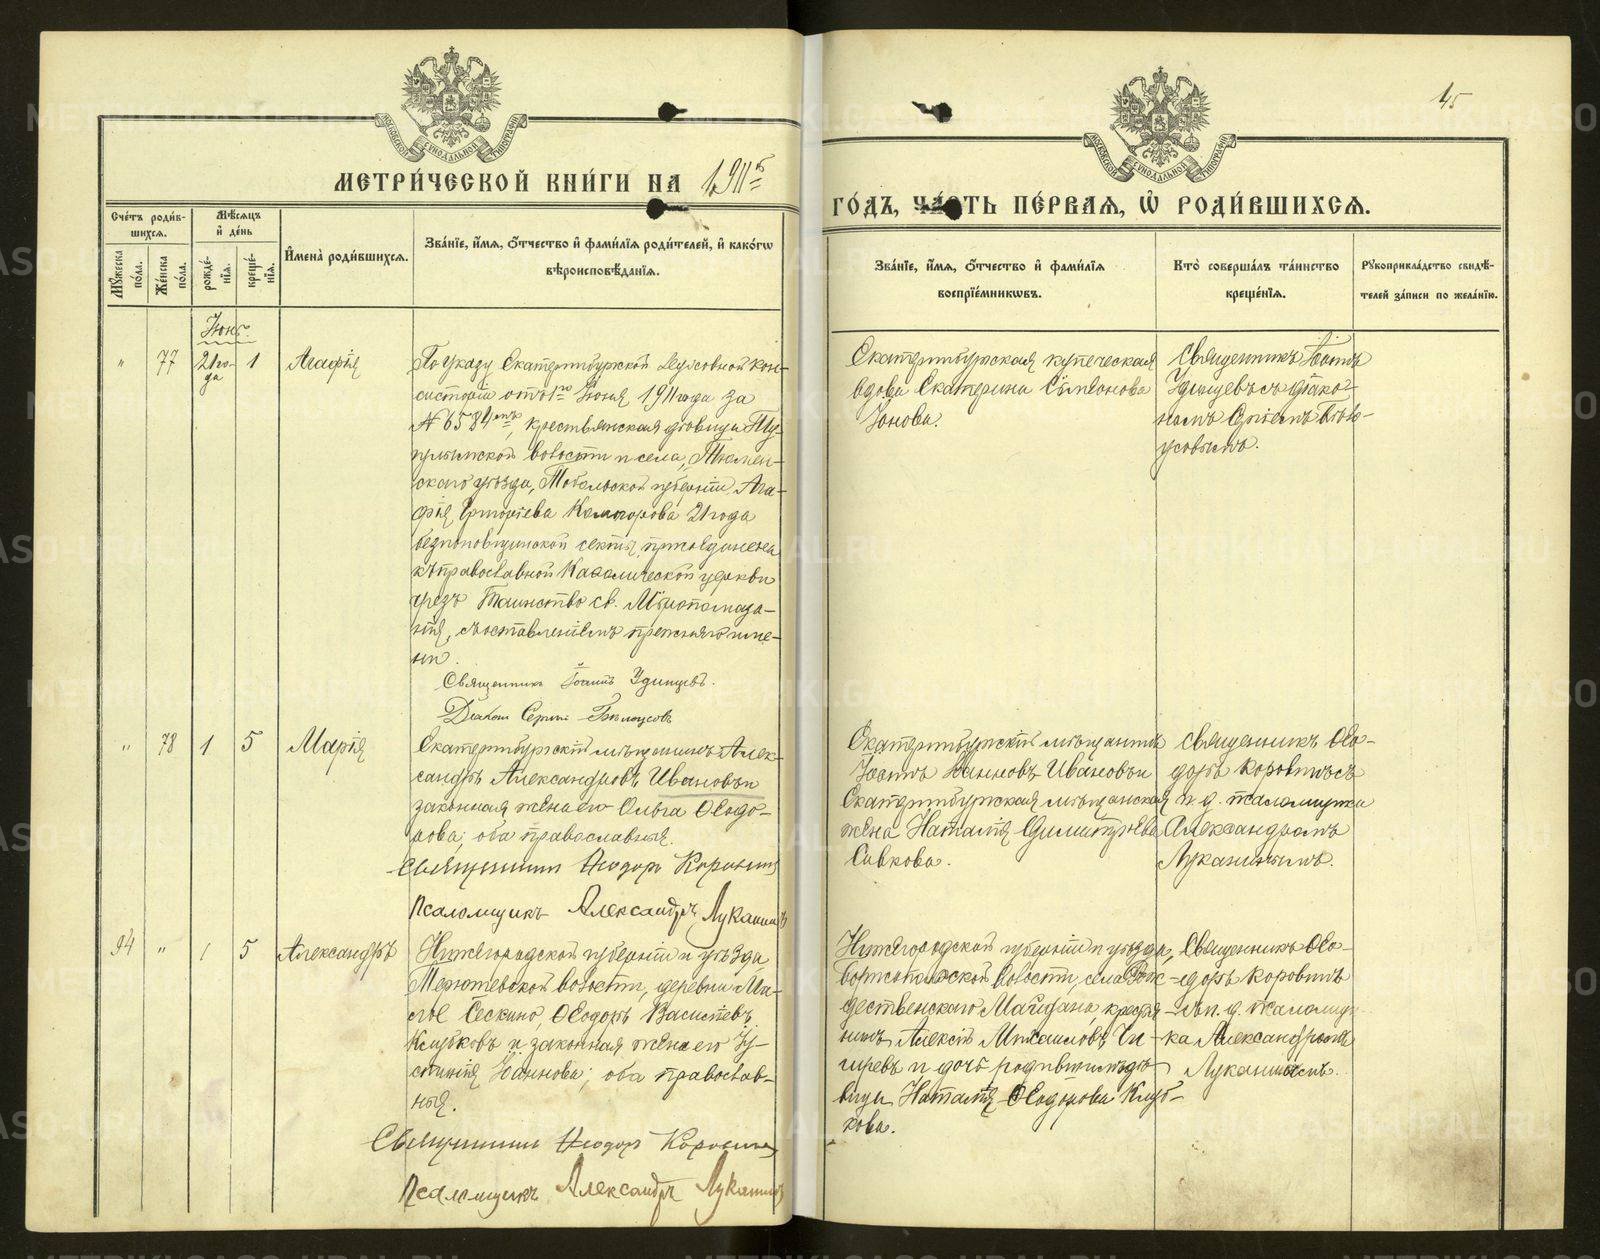 45
МЕТРИ́ЧЕСКОЙ КНИ́ГИ НА 1911й
ГО́ДЪ, ЧА́СТЬ ПЕ́РВАЯ, Ѡ҆ РОДИ́ВШИХСЯ.
МОСКОВСКОЙ СѴНОДАЛЬНОЙ ТИПОГРАФІИ
МОСКОВСКОЙ СѴНОДАЛЬНОЙ ТИПОГРАФІИ
Сче́тъ роди́в-
шихся.
Мꙋ́жеска по́ла.
Же́нска по́ла.
Мѣ́сяцъ
и҆ де́нь
рожде́-
нїя.
креще́-
нїя.
И҆мена̀ роди́вшихся.
Зва́нїе, и҆́мя, ѻ҆́тчество и҆ фами́лїя роди́телей, и҆ како́гѡ
вѣроисповѣ́данїя.
Зва́нїе, и҆́мя, ѻ҆́тчество и҆ фами́лїя
воспрїе́мникѡвъ.
Кто̀ соверша́лъ та́инство
креще́нїя.
Рꙋкоприкла́дство свидѣ́-
телей за́писи по жела́нїю.
Іюнь.
" 77 21 го-
да 1 Агафія
По указу Екатеринбургской Духовной Кон-
систоріи отъ 1го Іюня 1911 года за
№ 6584мъ, крестьянская дѣвица Ту-
гулымской волости и села, Тюмен-
скаго уѣзда, Тобольской губерніи Ага-
фія Григоріева 21 года
безпоповщинской секты, присоединена
къ православной Каѳолической церкви
чрезъ Таинство св. Мѵропомаза-
нія, съ оставленіемъ прежняго име-
ни.
Священникъ Іоаннъ Удинцевъ.
Діаконъ Сергій Бѣлоусовъ
Екатеринбургская купеческая
вдова Екатерина Сѵмеонова
Іонова.
Священникъ Іоаннъ
Удинцевъ съ діако-
номъ Сергіемъ Бѣло-
усовымъ.
" 78 1 5 Марія
Екатеринбургскій мѣщанинъ Алек-
сандръ Александровъ Ивановъ и
законная жена его Ольга Ѳеодо-
рова; оба православные.
Священникъ Ѳеодоръ Коровинъ
Псаломщикъ Александръ Луканинъ
Екатеринбургскій мѣщанинъ
Іоаннъ Іоанновъ Ивановъ и
Екатеринбургская мѣщанская
жена Наталія Димитріева
Сивкова.
Священникъ Ѳео-
доръ Коровинъ съ
и. д. псаломщика
Александромъ
Луканинымъ.
94 " 1 5 Александръ
Нижегородской губерніи и уѣзда,
волости, деревни Ма-
лое Сескино, Ѳеодоръ Василіевъ
и законная жена его Іу-
стинія Іоаннова; оба православ-
ные.
Священникъ Ѳеодоръ Коровинъ
Псаломщикъ Александръ Луканинъ
Нижегородской губерніи и уѣзда,
волости, села Рож-
дественскаго Майдана, крестья-
нинъ Алексій Михаиловъ Чи-
гиревъ и дочь родителей дѣ-
вица Наталія Ѳеодорова
кова.
Священникъ Ѳео-
доръ Коровинъ
съ и. д. псаломщи-
ка Александромъ
Луканинымъ.
METRIKI.GASO-URAL.RU